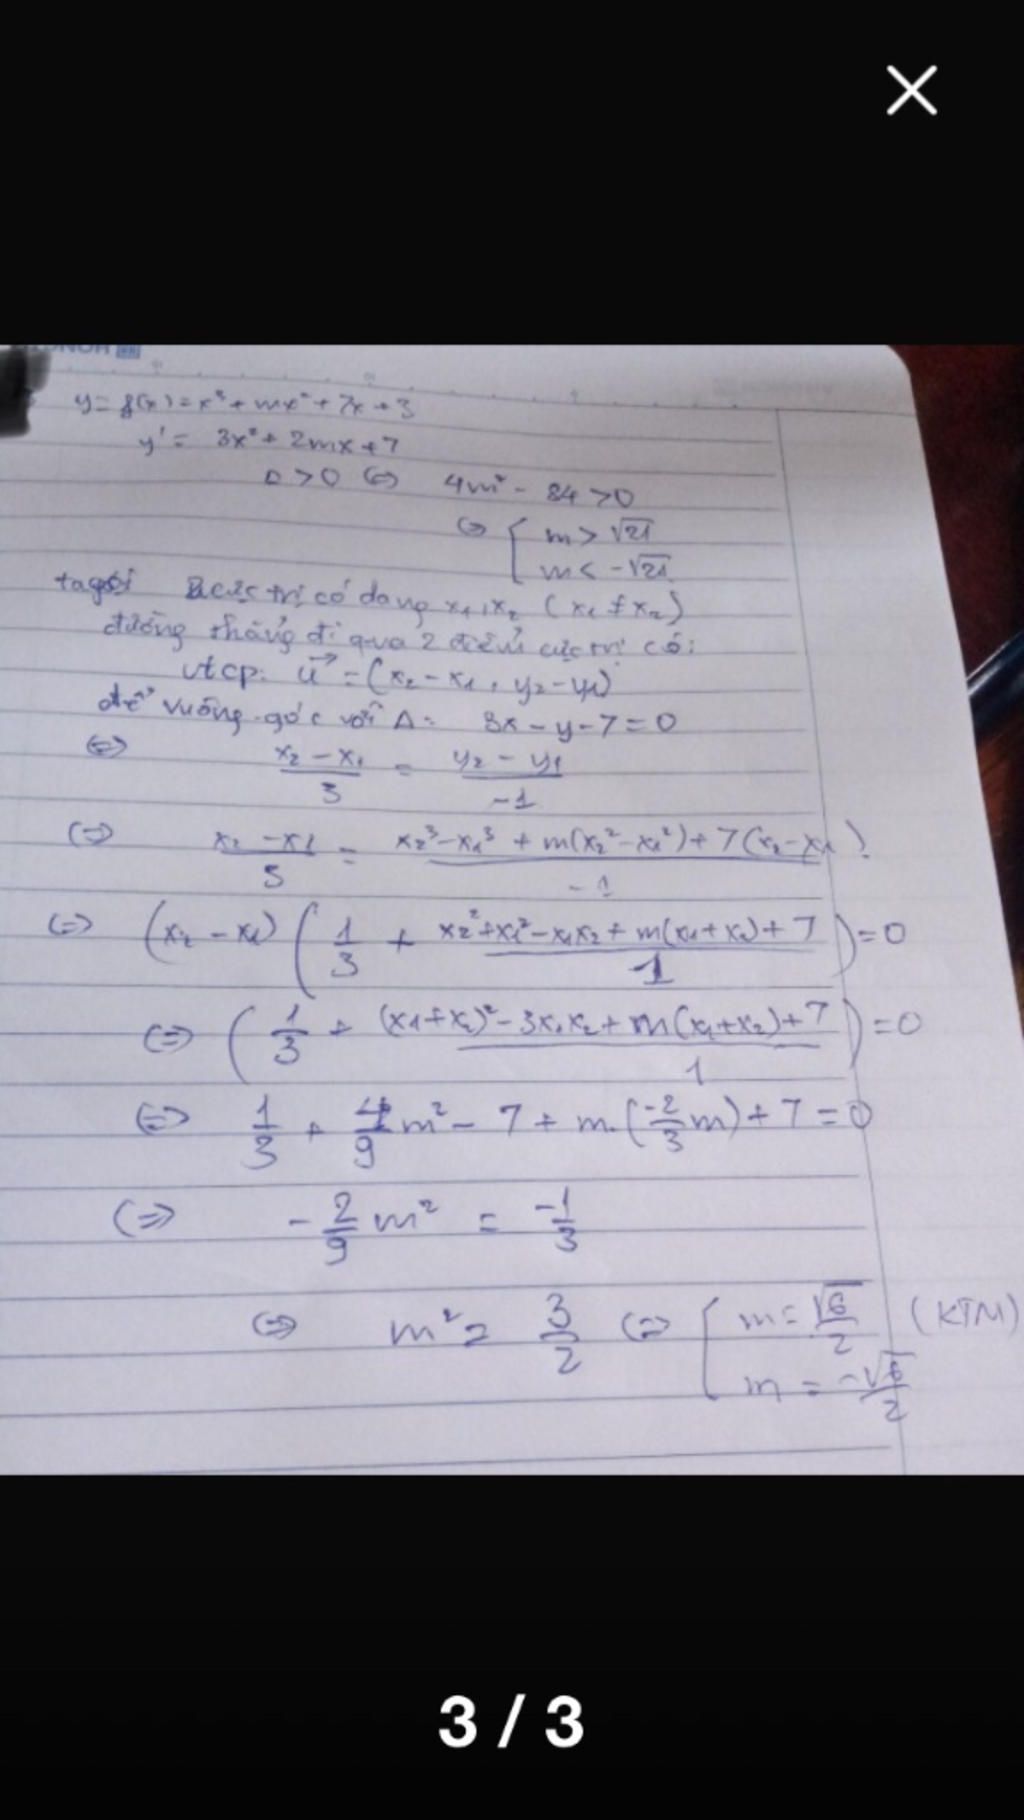 y = f(x) = x³ + mx² + 7x + 3
y' = 3x² + 2mx + 7
Δ > 0 ⇔ 4m² - 84 > 0
⇔ [ m > √21
m < -√21
ta gọi 2 cực trị có dạng x₁, x₂ (x₁ ≠ x₂)
đường thẳng đi qua 2 điểm cực trị có:
vtcp: u⃗ = (x₂ - x₁, y₂ - y₁)
để vuông góc với Δ: 3x - y - 7 = 0
⇔ (x₂ - x₁)/3 = (y₂ - y₁)/-1
⇔ (x₂ - x₁)/3 = (x₂³ - x₁³ + m(x₂² - x₁²) + 7(x₂ - x₁))/-1
⇔ (x₂ - x₁) (1/3 + (x₂² + x₁² - x₁x₂ + m(x₁ + x₂) + 7)/1) = 0
⇔ (1/3 + ((x₁ + x₂)² - 3x₁x₂ + m(x₁ + x₂) + 7)/1) = 0
⇔ 1/3 + 4/9 m² - 7 + m.(-2/3 m) + 7 = 0
⇔ -2/9 m² = -1/3
⇔ m² = 3/2 ⇔ [ m = √6/2 (KTM)
m = -√6/2
3 / 3